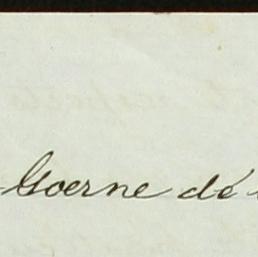 Goerne dé